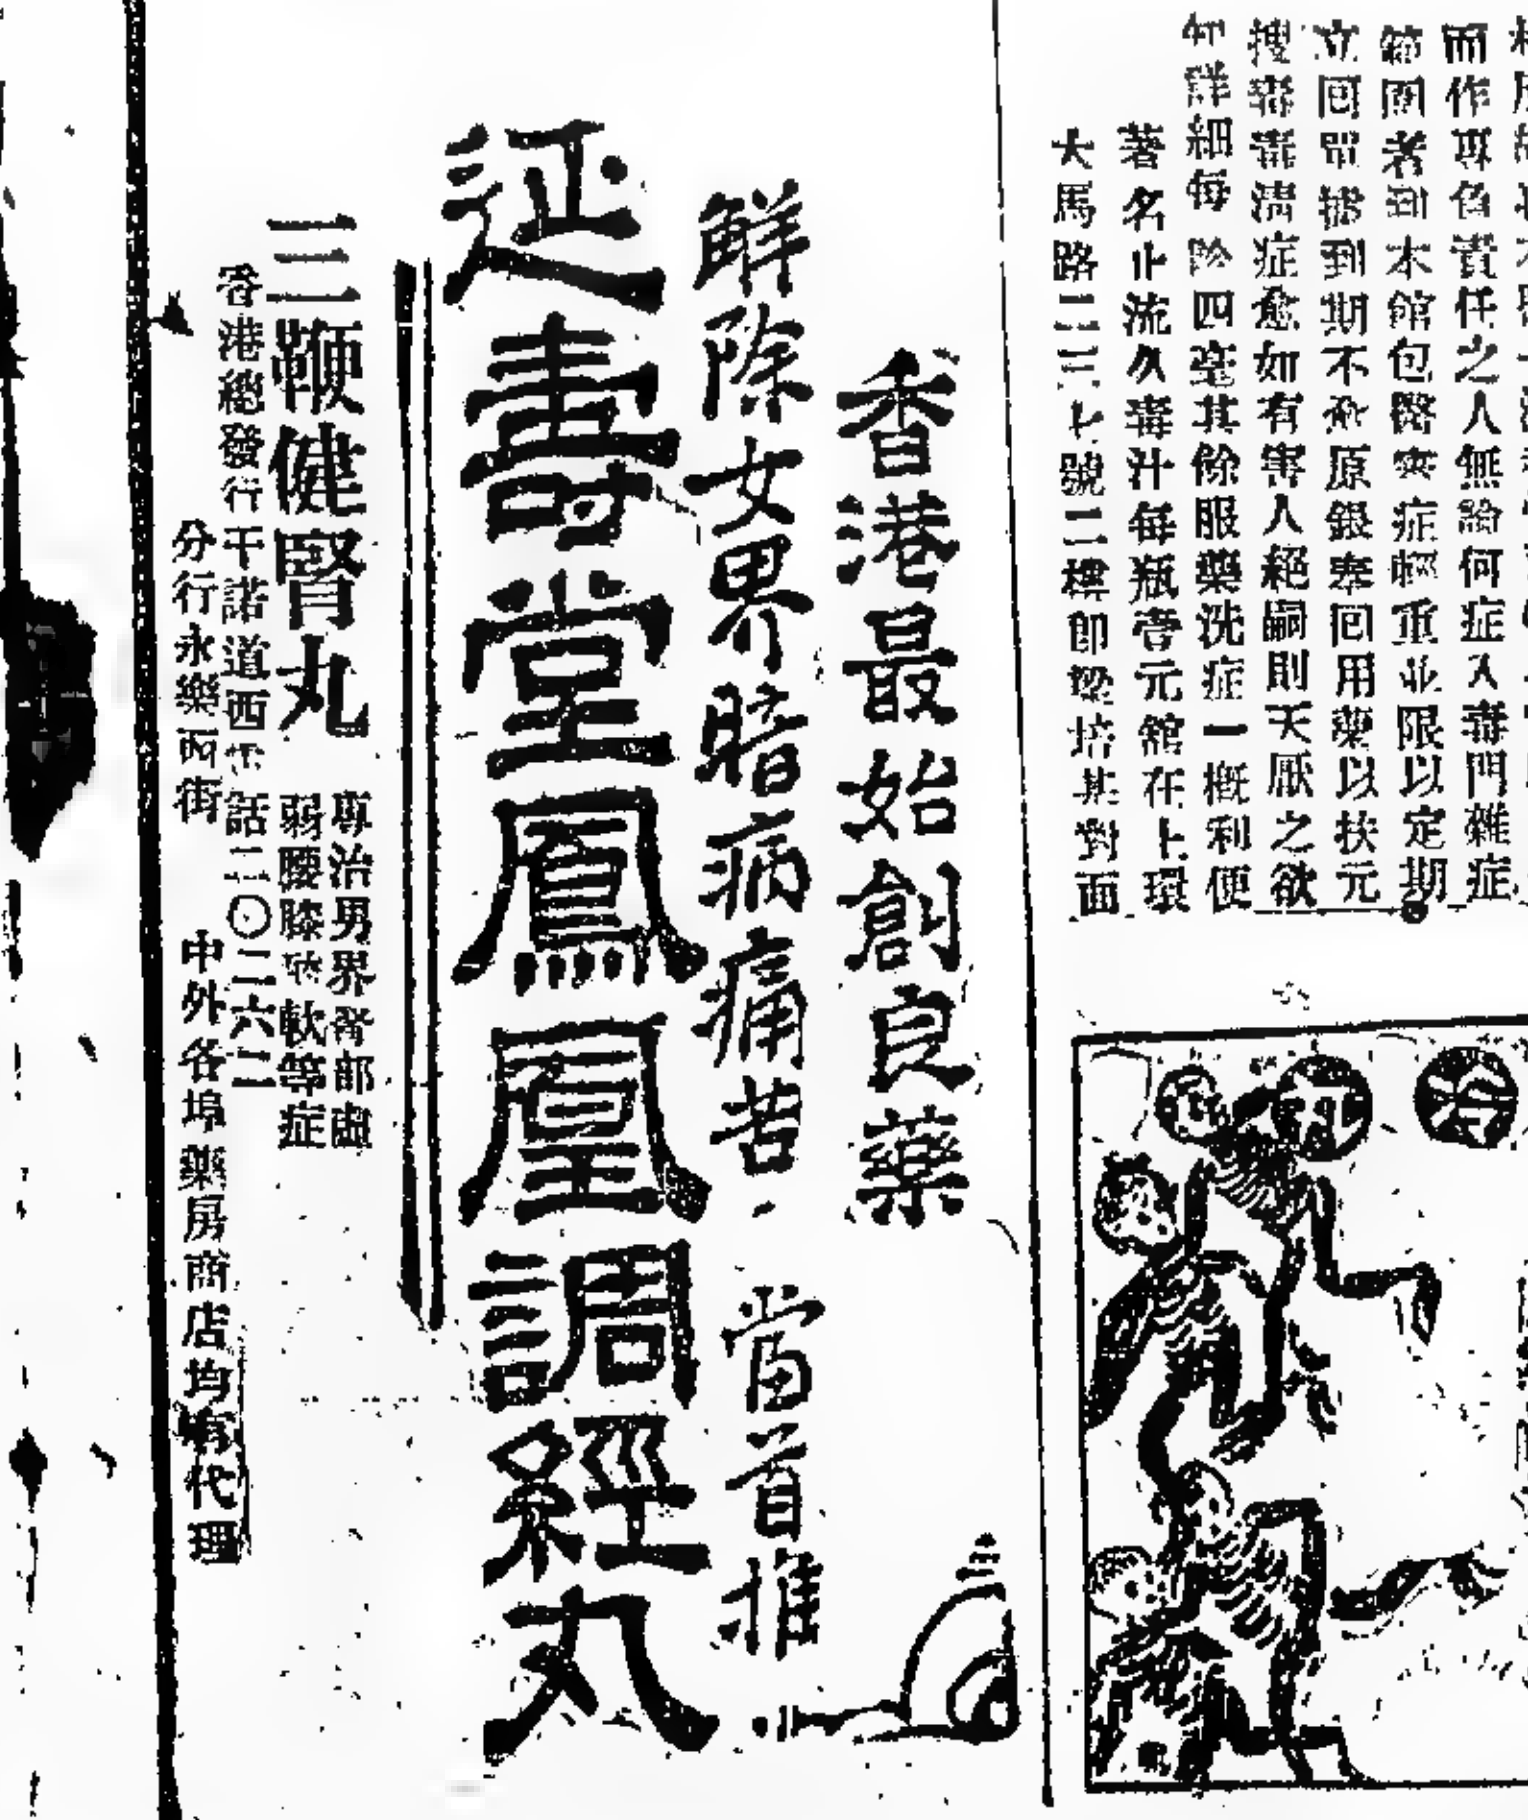 而作專負責任之人無論何症入毒門雜症
範圍者到本館包醫奕症輕重並限以定期
立囘單據到期不愈原銀奉囘用藥以扶元
搜毒毒清症愈如有害人絕嗣則天厭之欲
知詳細每 四毫其餘服藥洗症一概利便
著名止流久毒汁每瓶壹元館在上環
大馬路二三七號二樓即梁培基對面
香港最始創良藥
解除女界暗病痛苦・當首推
延壽堂鳳凰調經丸
三鞭健腎丸
專治男界腎部虛
弱腰膝 軟等症
香港總發行干諾道西 話二〇二六二
分行永樂西街 中外各埠藥房商店均有代理